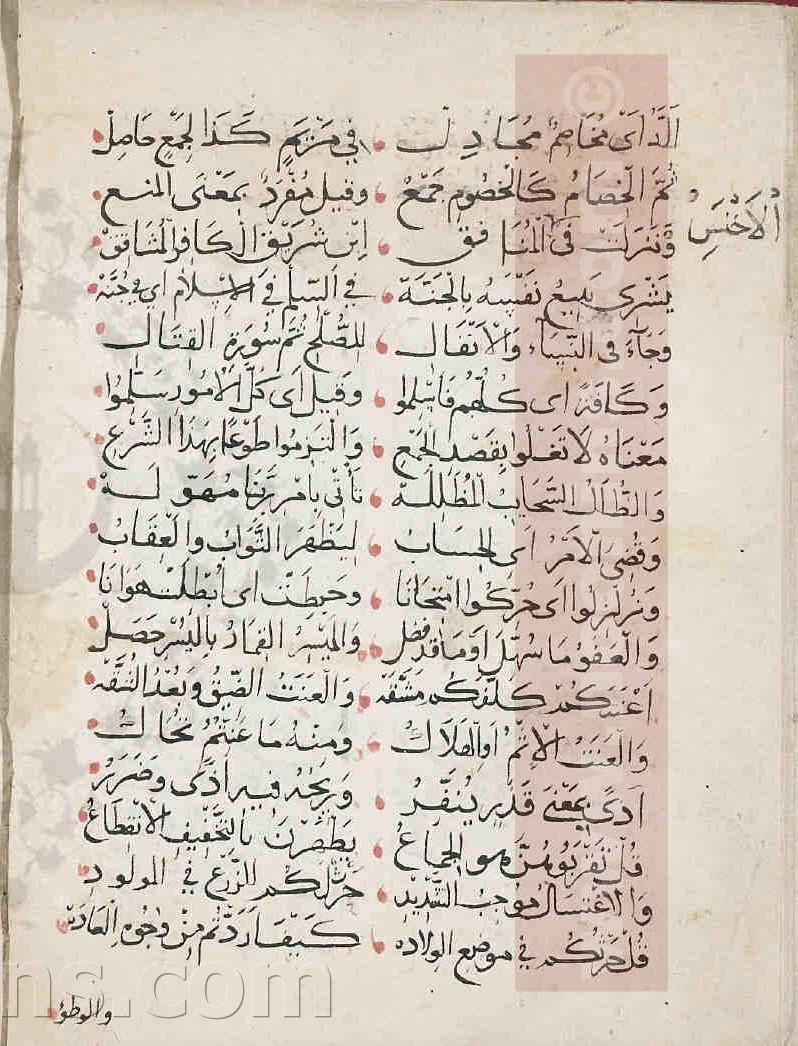 أَلَدُّ اَىْ مُخَاصِمٌ مُجَادِلُ • فِى مَرْيَمٍ كَذَا لِجَمْعٍ حَاصِلُ
ثُمَّ الْخِصَامُ كَالْخُصُومِ جَمْعُ • وَقِيلَ مُفْرَدٌ بِمَعْنَى الْمَنْعِ
وَنَزَلَتْ فِى الْمُنَافِقِ • اِبْنِ شَرِيقٍ الْكَافِرِ الْمُشَاقِقِ
اَلْاَخْنَسِ
يَشْرِى يَبِيعُ نَفْسَهُ بِالْجَنَّةِ • فِى السِّلْمِ فِى الْاِسْلَامِ اى فى جُنَّهْ
وَجَآءَ فى النِّسَآءِ وَالْاَنْفَالِ • لِلصُّلْحِ ثُمَّ سُورَةِ الْقِتَالِ
وَكَافَّةً اى كُلُّهُمْ فَاَسْلِمُوا • وَقِيلَ اَى كُلَّ الْاُمُورِ سَلِّمُوا
مَعْنَاهُ لَا تَغْلُوا بِقَصْدِ الْجَمْعِ • وَالْتَزِمُوا طَوْعًا بِهَذَا الشَّرْعِ
وَالظُّلَلُ السَّحَابُ الْمُظَلِّلَهْ • يَأْتِى بِامْرِ رَبِّنَا مُهَوِّلَهْ
وَقُضِىَ الْاَمْرُ اَى الْحِسَابُ • لِيَظْهَرَ الثَّوَابُ وَالْعِقَابُ
وَزُلْزِلُوا اى حُرِّكُوا امْتِحَانَا • وَحَبِطَتْ اى اُبْطِلَتْ هَوَانَا
وَالْعَفْوُ مَا سَهُلَ اَوْ مَا قَدْ فَضَلْ • وَالْمَيْسِرُ الْقِمَارُ بِالْيُسْرِ حَصَلْ
اَعْنَتَكُمْ كَلَّفَكُمْ مَشَقَّهْ • وَالْعَنَتُ الضِّيقُ وَبُعْدُ الشُّقَّهْ
وَالْعَنَتُ الْاِثْمُ اَوِ الْهَلَاكُ • وَمِنْهُ مَا عَنِتُّمُ
اَذًى بِمَعْنَى قَذَرٍ يُنَفِّرُ • فِيهِ اَذًى وَضَرَرُ
قُلْ تَقْرَبُوهُنَّ هو الْجِمَاعُ • يَطْهُرْنَ بِالتَّخْفِيفِ الْاِنْقِطَاعُ
وَالْاِغْتِسَالُ مُوجِبُ التَّشْدِيدِ • حَرْثٌ لَكُمْ الزَّرْعُ فى الْمَوْلُودِ
قُلْ حَرْثُكُمْ فى مَوْضِعِ الوِلَادَهْ • كَيْفَ اَرَدْتُمْ مِنْ وُجُوهِ الْعَادَهْ
والوطؤ
ns.com